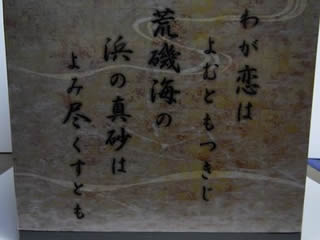 わが恋は
よむともつきじ
荒磯海の
浜の真砂は
よみ尽くすとも